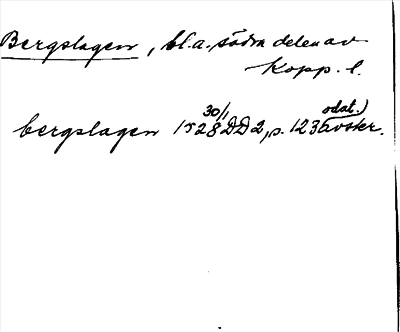 Bergslagen, bl.a. södra delen av
Kopp. l.
bergslagen 1528 30/1 DD2, p. 123 (odat.) avskr.